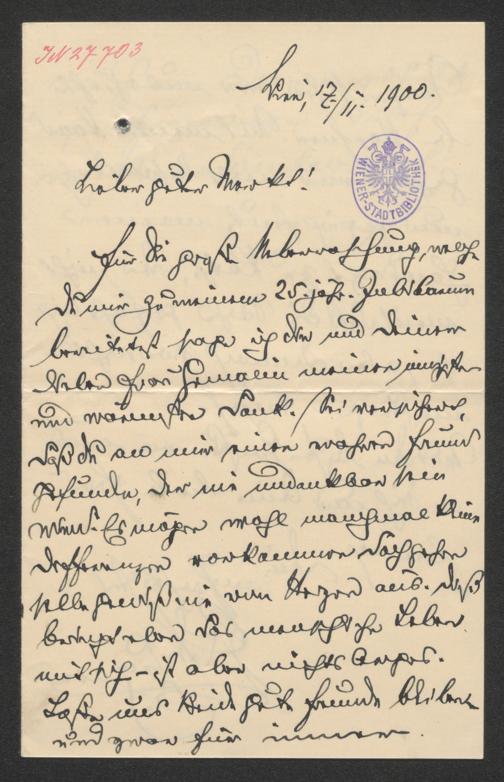 IN 27703
Wien, 17/II. 1900.
WIENER-STADTBIBLIOTHEK
Lieber guter Merkt!
Für die große Ueberraschung, welche
Du mir zu meinem 25 jähr. Jubiläum
bereitetest sage ich dir und deiner
lieben Frau Gemalin meinen innigsten
und wärmsten Dank. Sei versichert,
daß du an mir einen wahren Freund
gefunden, der nie undankbar sein
wird. Es mögen wohl manchmal kleine
Differenzen vorkommen doch gehen
selbe gewiß nie vom Herzen aus. Dieß
bringt eben das menschliche Leben
mit sich – ist aber nichts
Laße uns Beide gute Freunde bleiben
und zwar für immer.